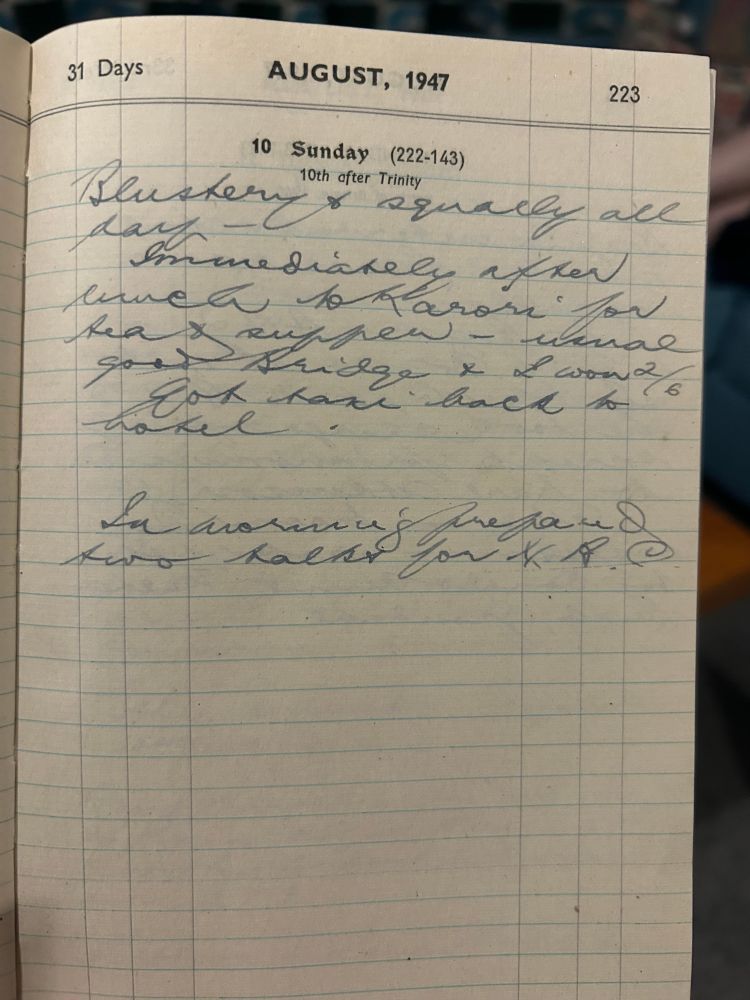 31 Days AUGUST, 1947 223
10 Sunday (222-143)
10th after Trinity
Blustery & squally all
day —
Immediately after
lunch to Karori for
tea & supper – usual
good Bridge & I won 2/6
Got taxi back to
hotel .
In morning prepared
two talks for